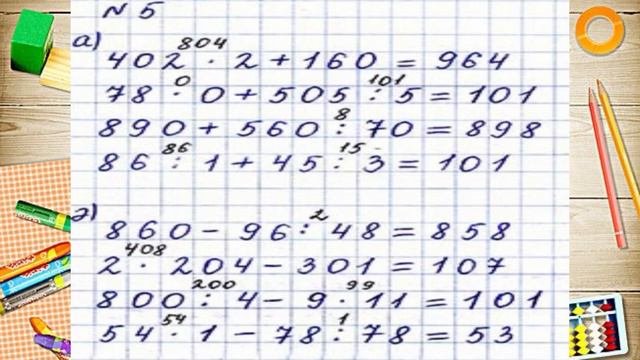 N 5
а) 804
402 · 2 + 160 = 964
0 101
78 · 0 + 505 : 5 = 101
8
890 + 560 : 70 = 898
86 15
86 : 1 + 45 : 3 = 101
д) 2
860 - 96 : 48 = 858
408
2 · 204 - 301 = 107
200 99
800 : 4 - 9 · 11 = 101
54 1
54 · 1 - 78 : 78 = 53